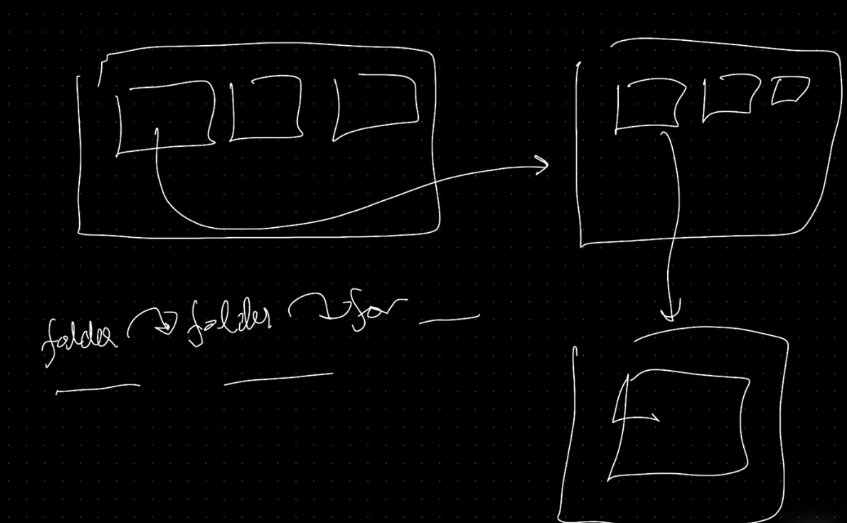 folder → folder → for